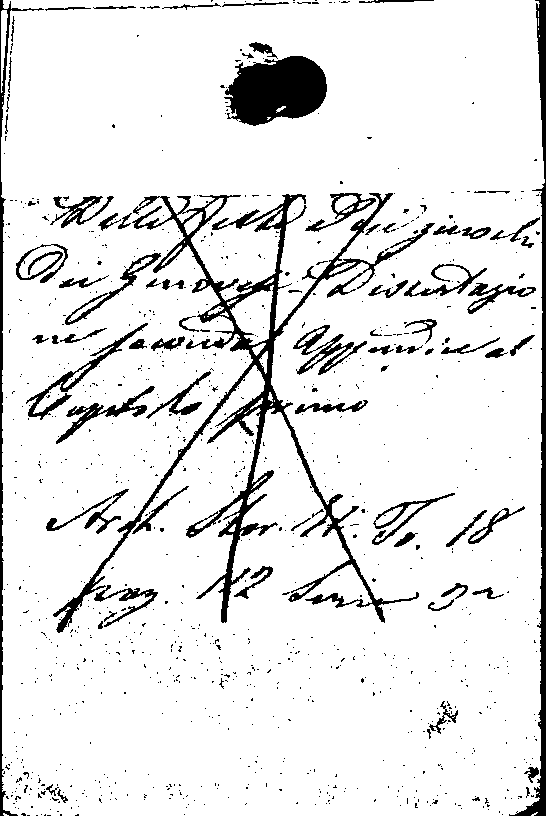 Delle feste e dei giuochi
Dei Genovesi - Dissertazio
ne seconda Appendice al
Capitolo primo
Arch. Stor. It. To. 18
pag. 112 Serie 3a